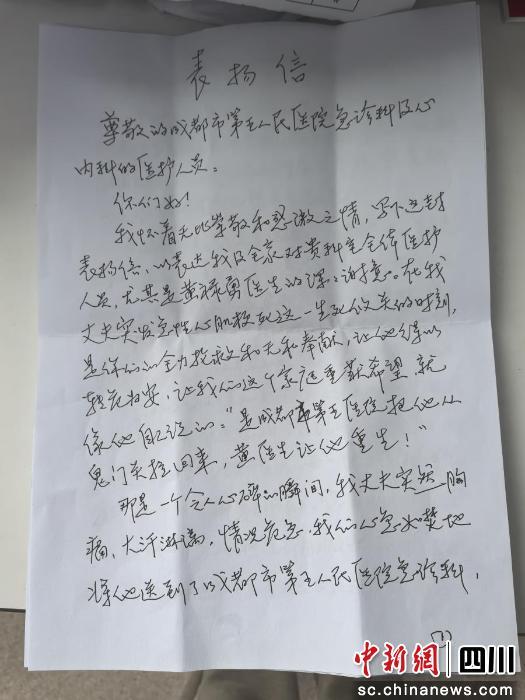 表扬信
尊敬的成都市第五人民医院急诊科及心
内科的医护人员:
你们好!
我怀着无比崇敬和感激之情,写下这封
表扬信,以表达我及全家对贵科室全体医护
人员,尤其是黄禄勇医生的深深谢意。在我
丈夫突发急性心肌梗死这一生死攸关的时刻,
是你们的全力抢救和无私奉献,让他得以
转危为安,让我们这个家庭重获希望,就
像他自己说的:"是成都市第五医院把他从
鬼门关拉回来,黄医生让他重生!"
那是一个令人心碎的瞬间,我丈夫突然胸
痛、大汗淋漓,情况危急,我们心急如焚地
将他送到了成都市第五人民医院急诊科,
中新网 四川
sc.chinanews.com